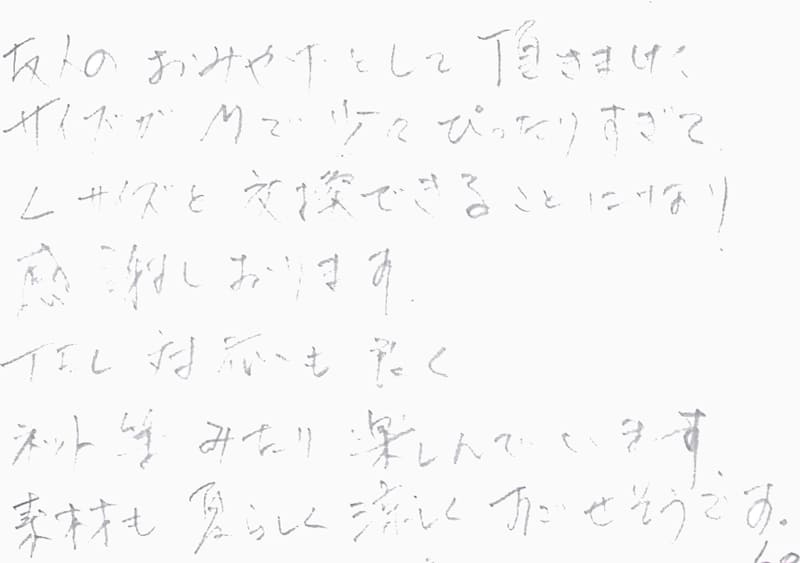 友人のおみやげとして頂きましたく
サイズがMで少々ぴったりすぎて、
Lサイズと交換できることになり、
感謝しおります。
TEL対応も良く
ネット等みたり楽しんでいます
素材も夏らしく涼しくすごせそうです。